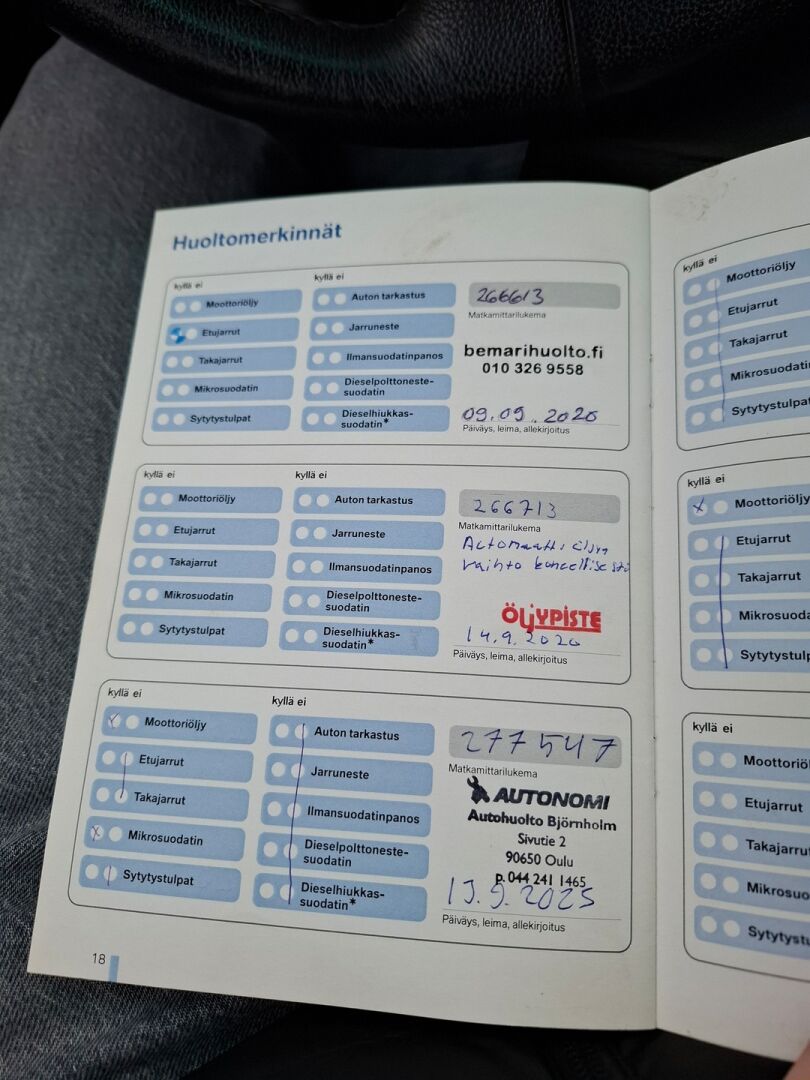 Huoltomerkinnät
kyllä ei
kyllä ei
Moottoriöljy
Etujarrut
Takajarrut
Mikrosuodatin
Sytytystulpat
Auton tarkastus
Jarruneste
Ilmansuodatinpanos
Dieselpolttoneste-
suodatin
Dieselhiukkas-
suodatin*
266613
Matkamittarilukema
bemarihuolto.fi
010 326 9558
09.09.2020
Päiväys, leima, allekirjoitus
kyllä ei
kyllä ei
Moottoriöljy
Etujarrut
Takajarrut
Mikrosuodatin
Sytytystulpat
Auton tarkastus
Jarruneste
Ilmansuodatinpanos
Dieselpolttoneste-
suodatin
Dieselhiukkas-
suodatin*
266713
Matkamittarilukema
vaihto
ÖljYPISTE
14.9.2020
Päiväys, leima, allekirjoitus
kyllä ei
kyllä ei
Moottoriöljy
Etujarrut
Takajarrut
Mikrosuodatin
Sytytystulpat
Auton tarkastus
Jarruneste
Ilmansuodatinpanos
Dieselpolttoneste-
suodatin
Dieselhiukkas-
suodatin*
277547
Matkamittarilukema
AUTONOMI
Autohuolto Björnholm
Sivutie 2
90650 Oulu
p. 044 241 1465
Päiväys, leima, allekirjoitus
18
kyllä ei
Moottoriöljy
Etujarrut
Takajarrut
Mikrosuodati
Sytytystulpat
kyllä ei
Moottoriöljy
Etujarrut
Takajarrut
Mikrosuodati
Sytytystulpa
kyllä ei
Moottoriöl
Etujarrut
Takajarru
Mikrosuo
Sytytyst